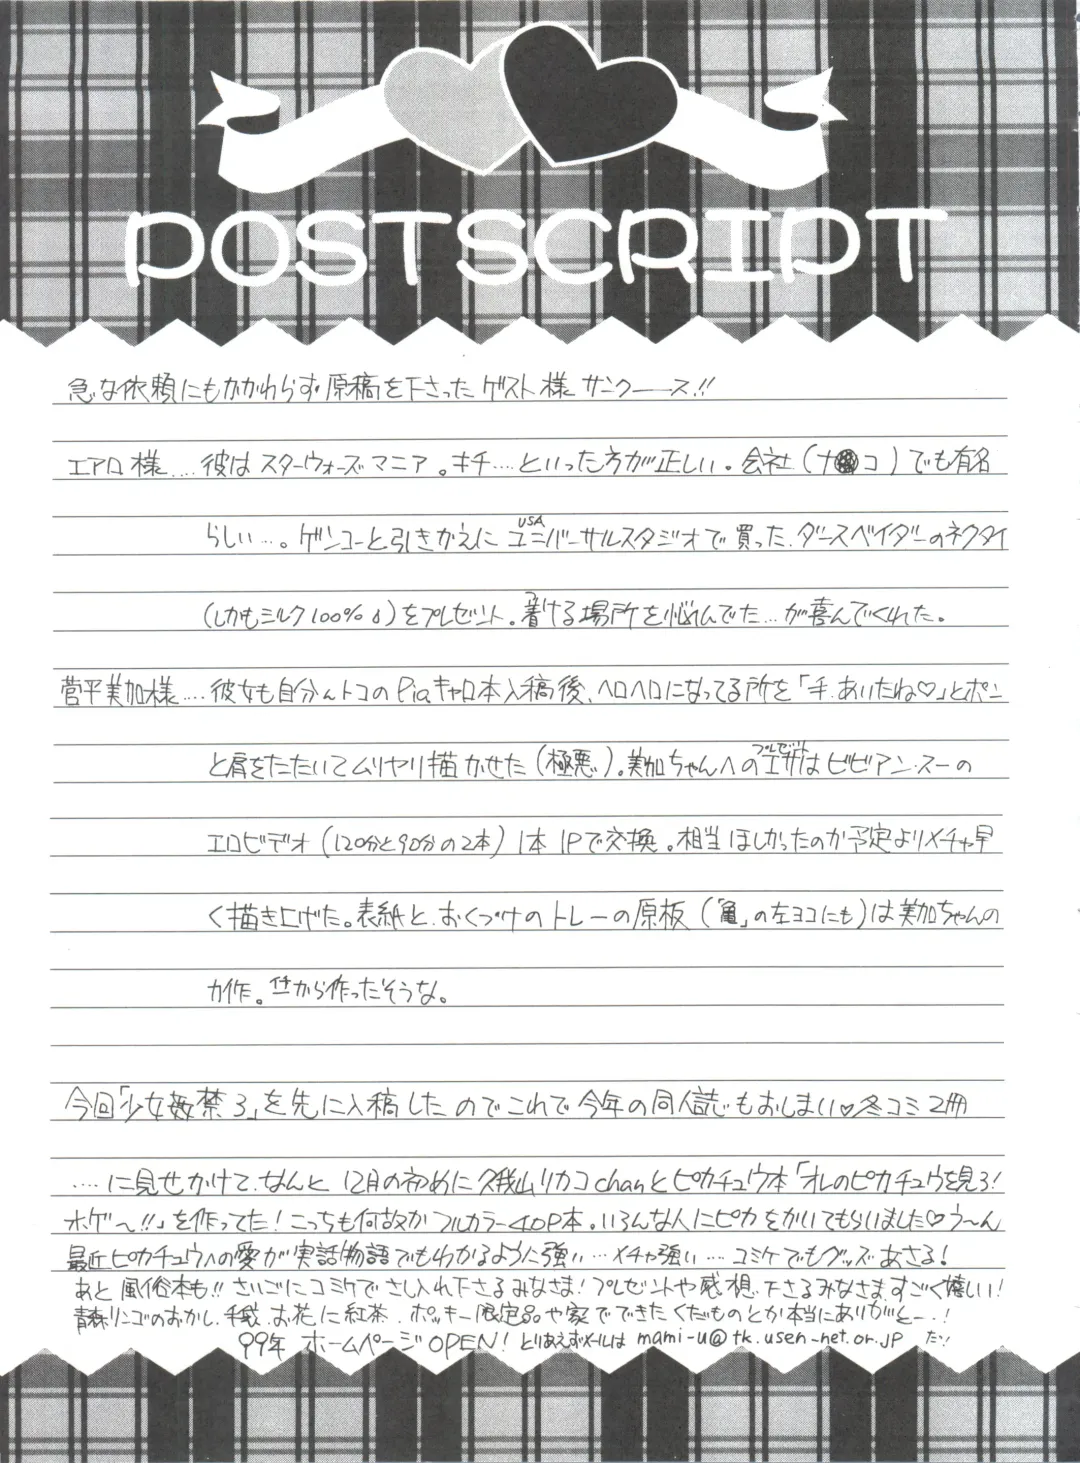 POSTSCRIPT
急な依頼にもかかわらず原稿を下さったゲスト様サンクーース!!
エアロ様……彼はスターウォーズマニア。キチ……といった方が正しい。会社(ナ●コ)でも有名
らしい…。ゲンコーと引きかえにUSAユニバーサルスタジオで買った、ダースベイダーのネクタイ
(しかもシルク100%)をプレゼント。着ける場所を悩んでた…が喜んでくれた。
菅平美加様……彼女も自分んトコのPiaキャロ本入稿後、ヘロヘロになってる所を「手、あいたね♡」とポン
と肩をたたいてムリヤリ描かせた(極悪)。美加ちゃんへのエサ(プレゼント)はビビアン・スーの
エロビデオ(120分と90分の2本)1本1Pで交換。相当ほしかったのか予定よりメチャ早
く描き上げた。表紙と、おくづけのトレーの原板(「亀」の左ヨコにも)は美加ちゃんの
力作。から作ったそうな。
今回「少女姦禁3」を先に入稿したのでこれで今年の同人誌もおしまい♡冬コミ2冊
……に見せかけて、なんと12月の初めにリカコchanとピカチュウ本「オレのピカチュウを見ろ!
ホゲ〜!!」を作ってた!こっちも何故かフルカラー40P本。いろんな人にピカをかいてもらいました♡う〜ん
最近ピカチュウへの愛が実話物語でもわかるように強い…メチャ強い…コミケでもグッズあさる!
あと風俗本も!!さいごにコミケでさし入れ下さるみなさま!プレゼントや感想、下さるみなさますごく嬉しい!
青森リンゴのおかし、手袋、お花に紅茶、ポッキー限定品や家でできたくだものとか本当にありがとー!
99年 ホームページOPEN! とりあえずメールは mami-u@tk.usen-net.or.jp だ!